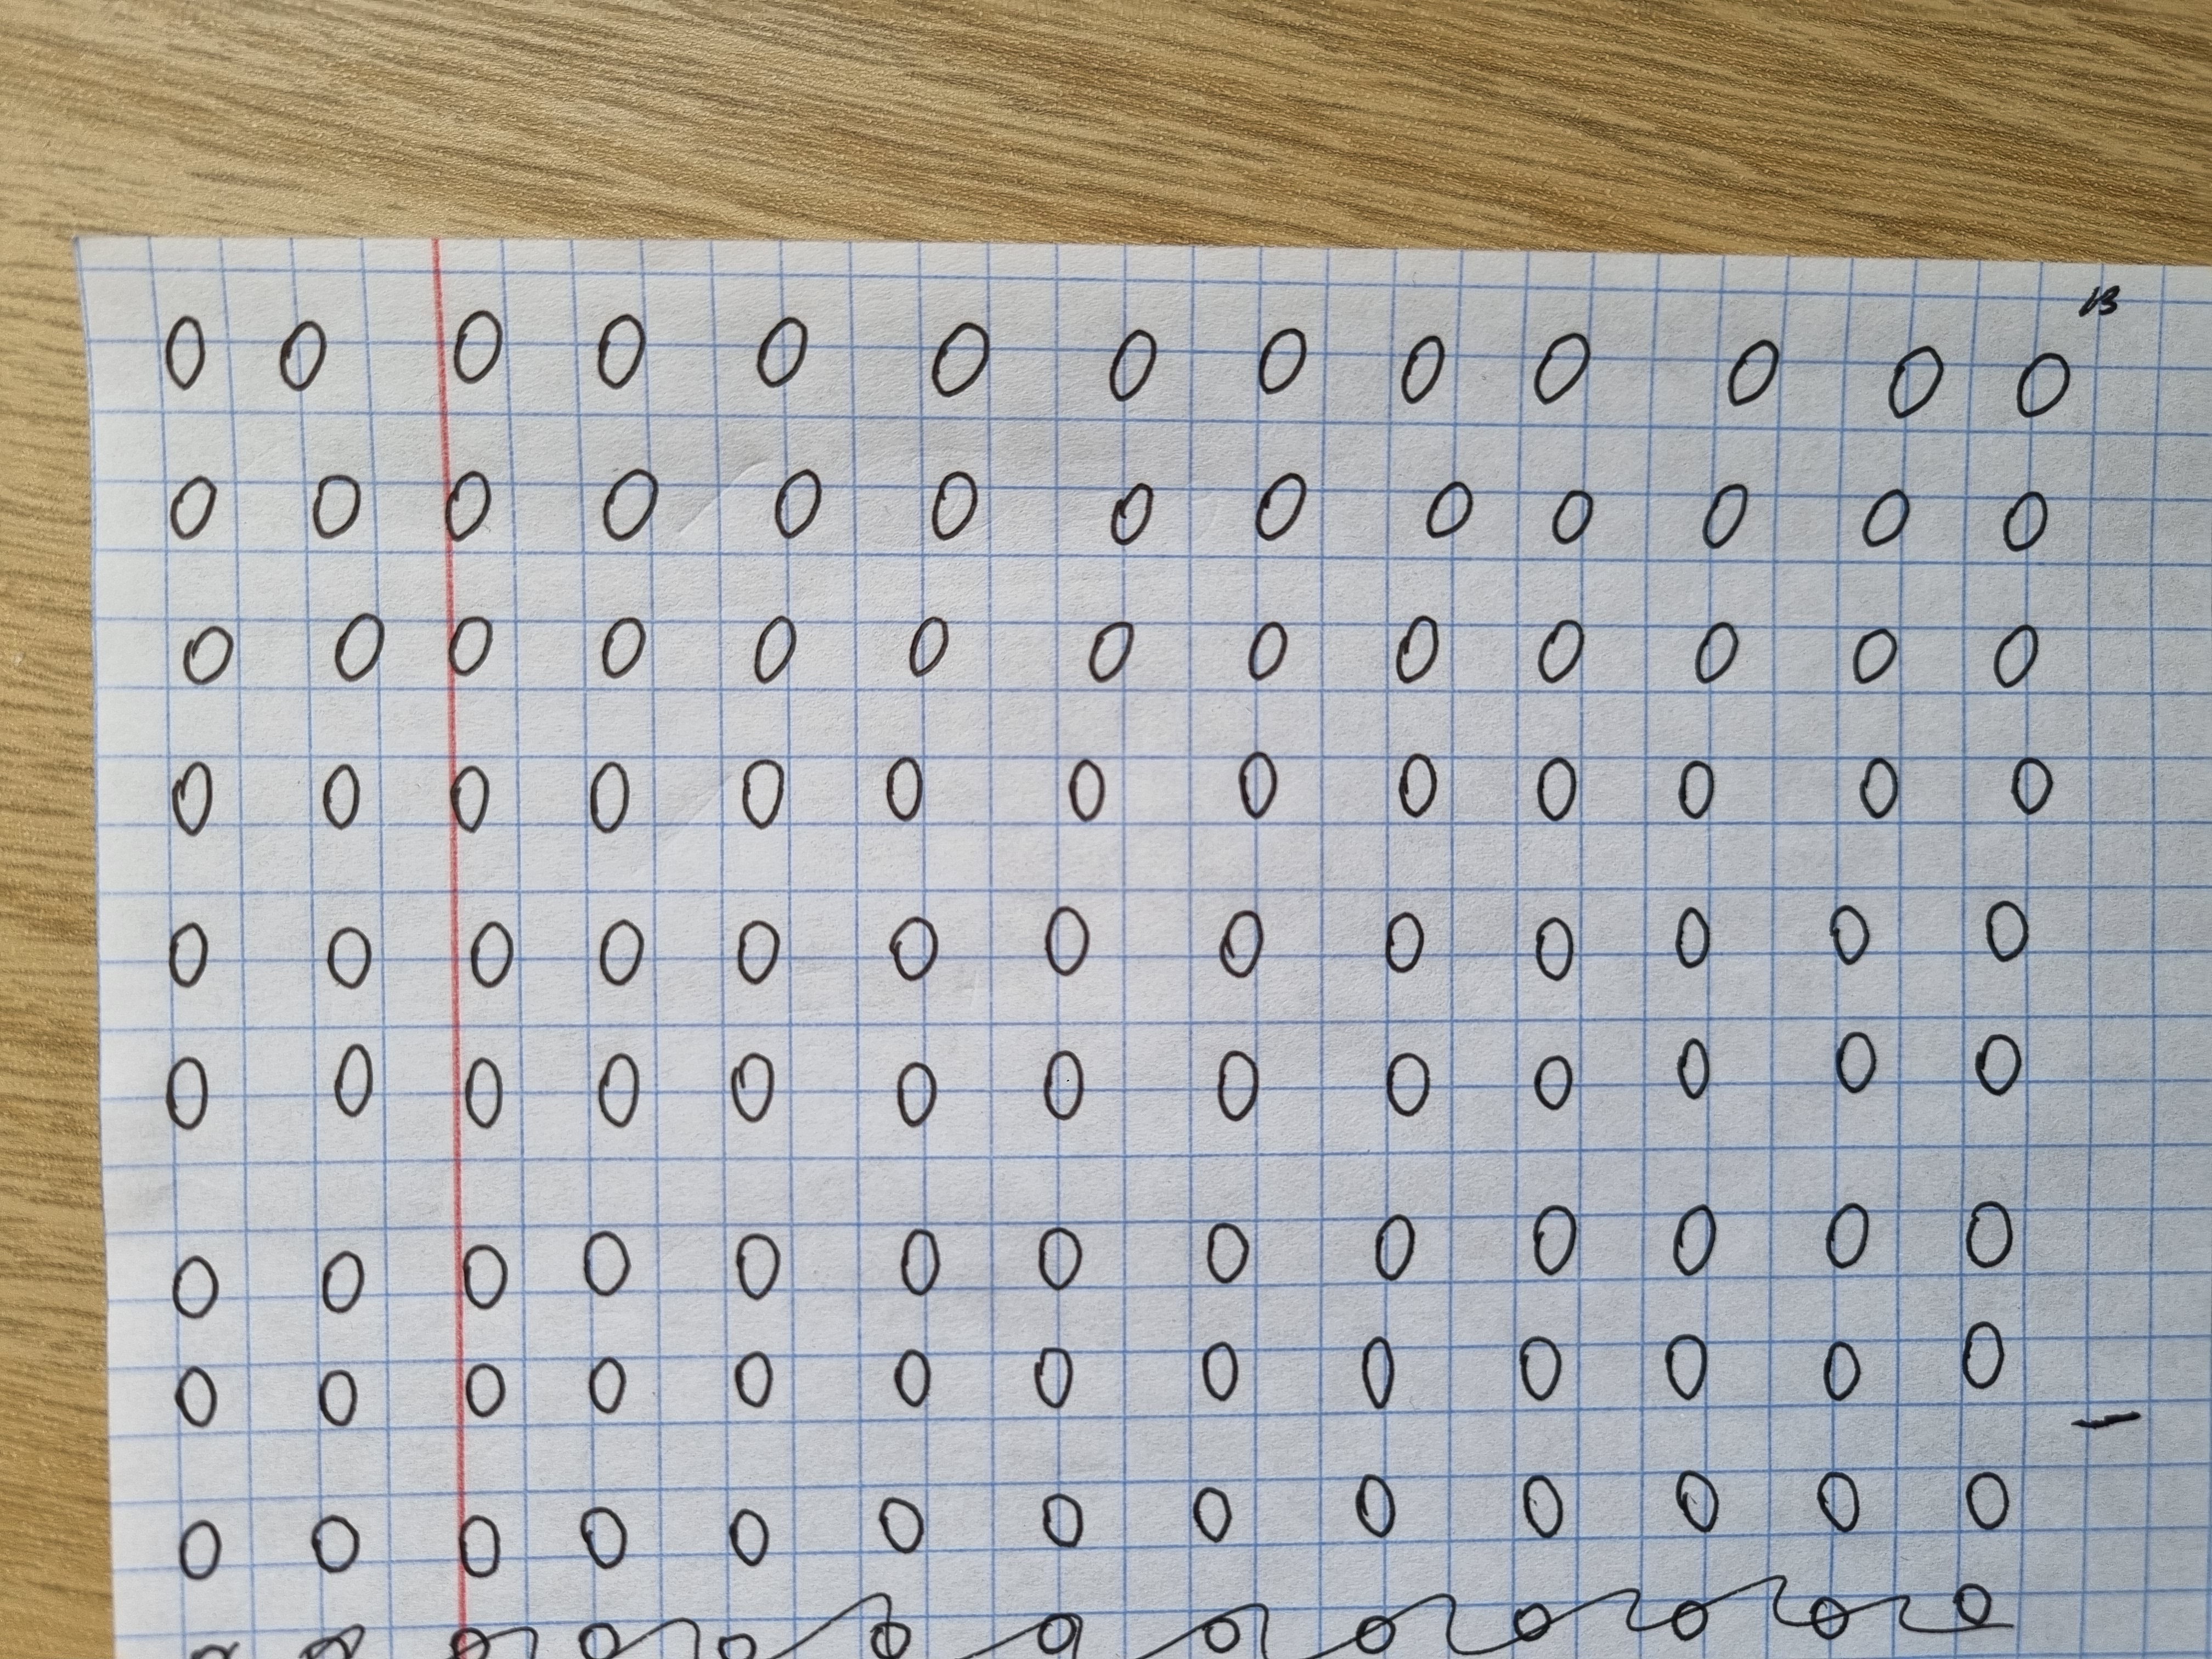 13
0 0 0 0 0 0 0 0 0 0 0 0 0
0 0 0 0 0 0 0 0 0 0 0 0 0
0 0 0 0 0 0 0 0 0 0 0 0 0
0 0 0 0 0 0 0 0 0 0 0 0 0
0 0 0 0 0 0 0 0 0 0 0 0 0
0 0 0 0 0 0 0 0 0 0 0 0 0
0 0 0 0 0 0 0 0 0 0 0 0 0
0 0 0 0 0 0 0 0 0 0 0 0 0
0 0 0 0 0 0 0 0 0 0 0 0 0